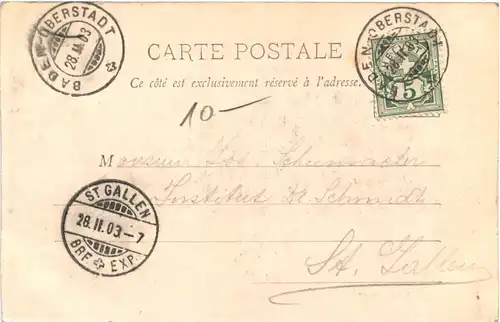 BADEN-OBERSTADT
28.II.03
BADEN-OBERSTADT
5
CARTE POSTALE
Ce côté est exclusivement réservé à l'adresse.
10-
Monsieur Jos. Schumacher
Institut Dr Schmidt
St. Gallen
ST GALLEN
28.II.03-7
BRF EXP.